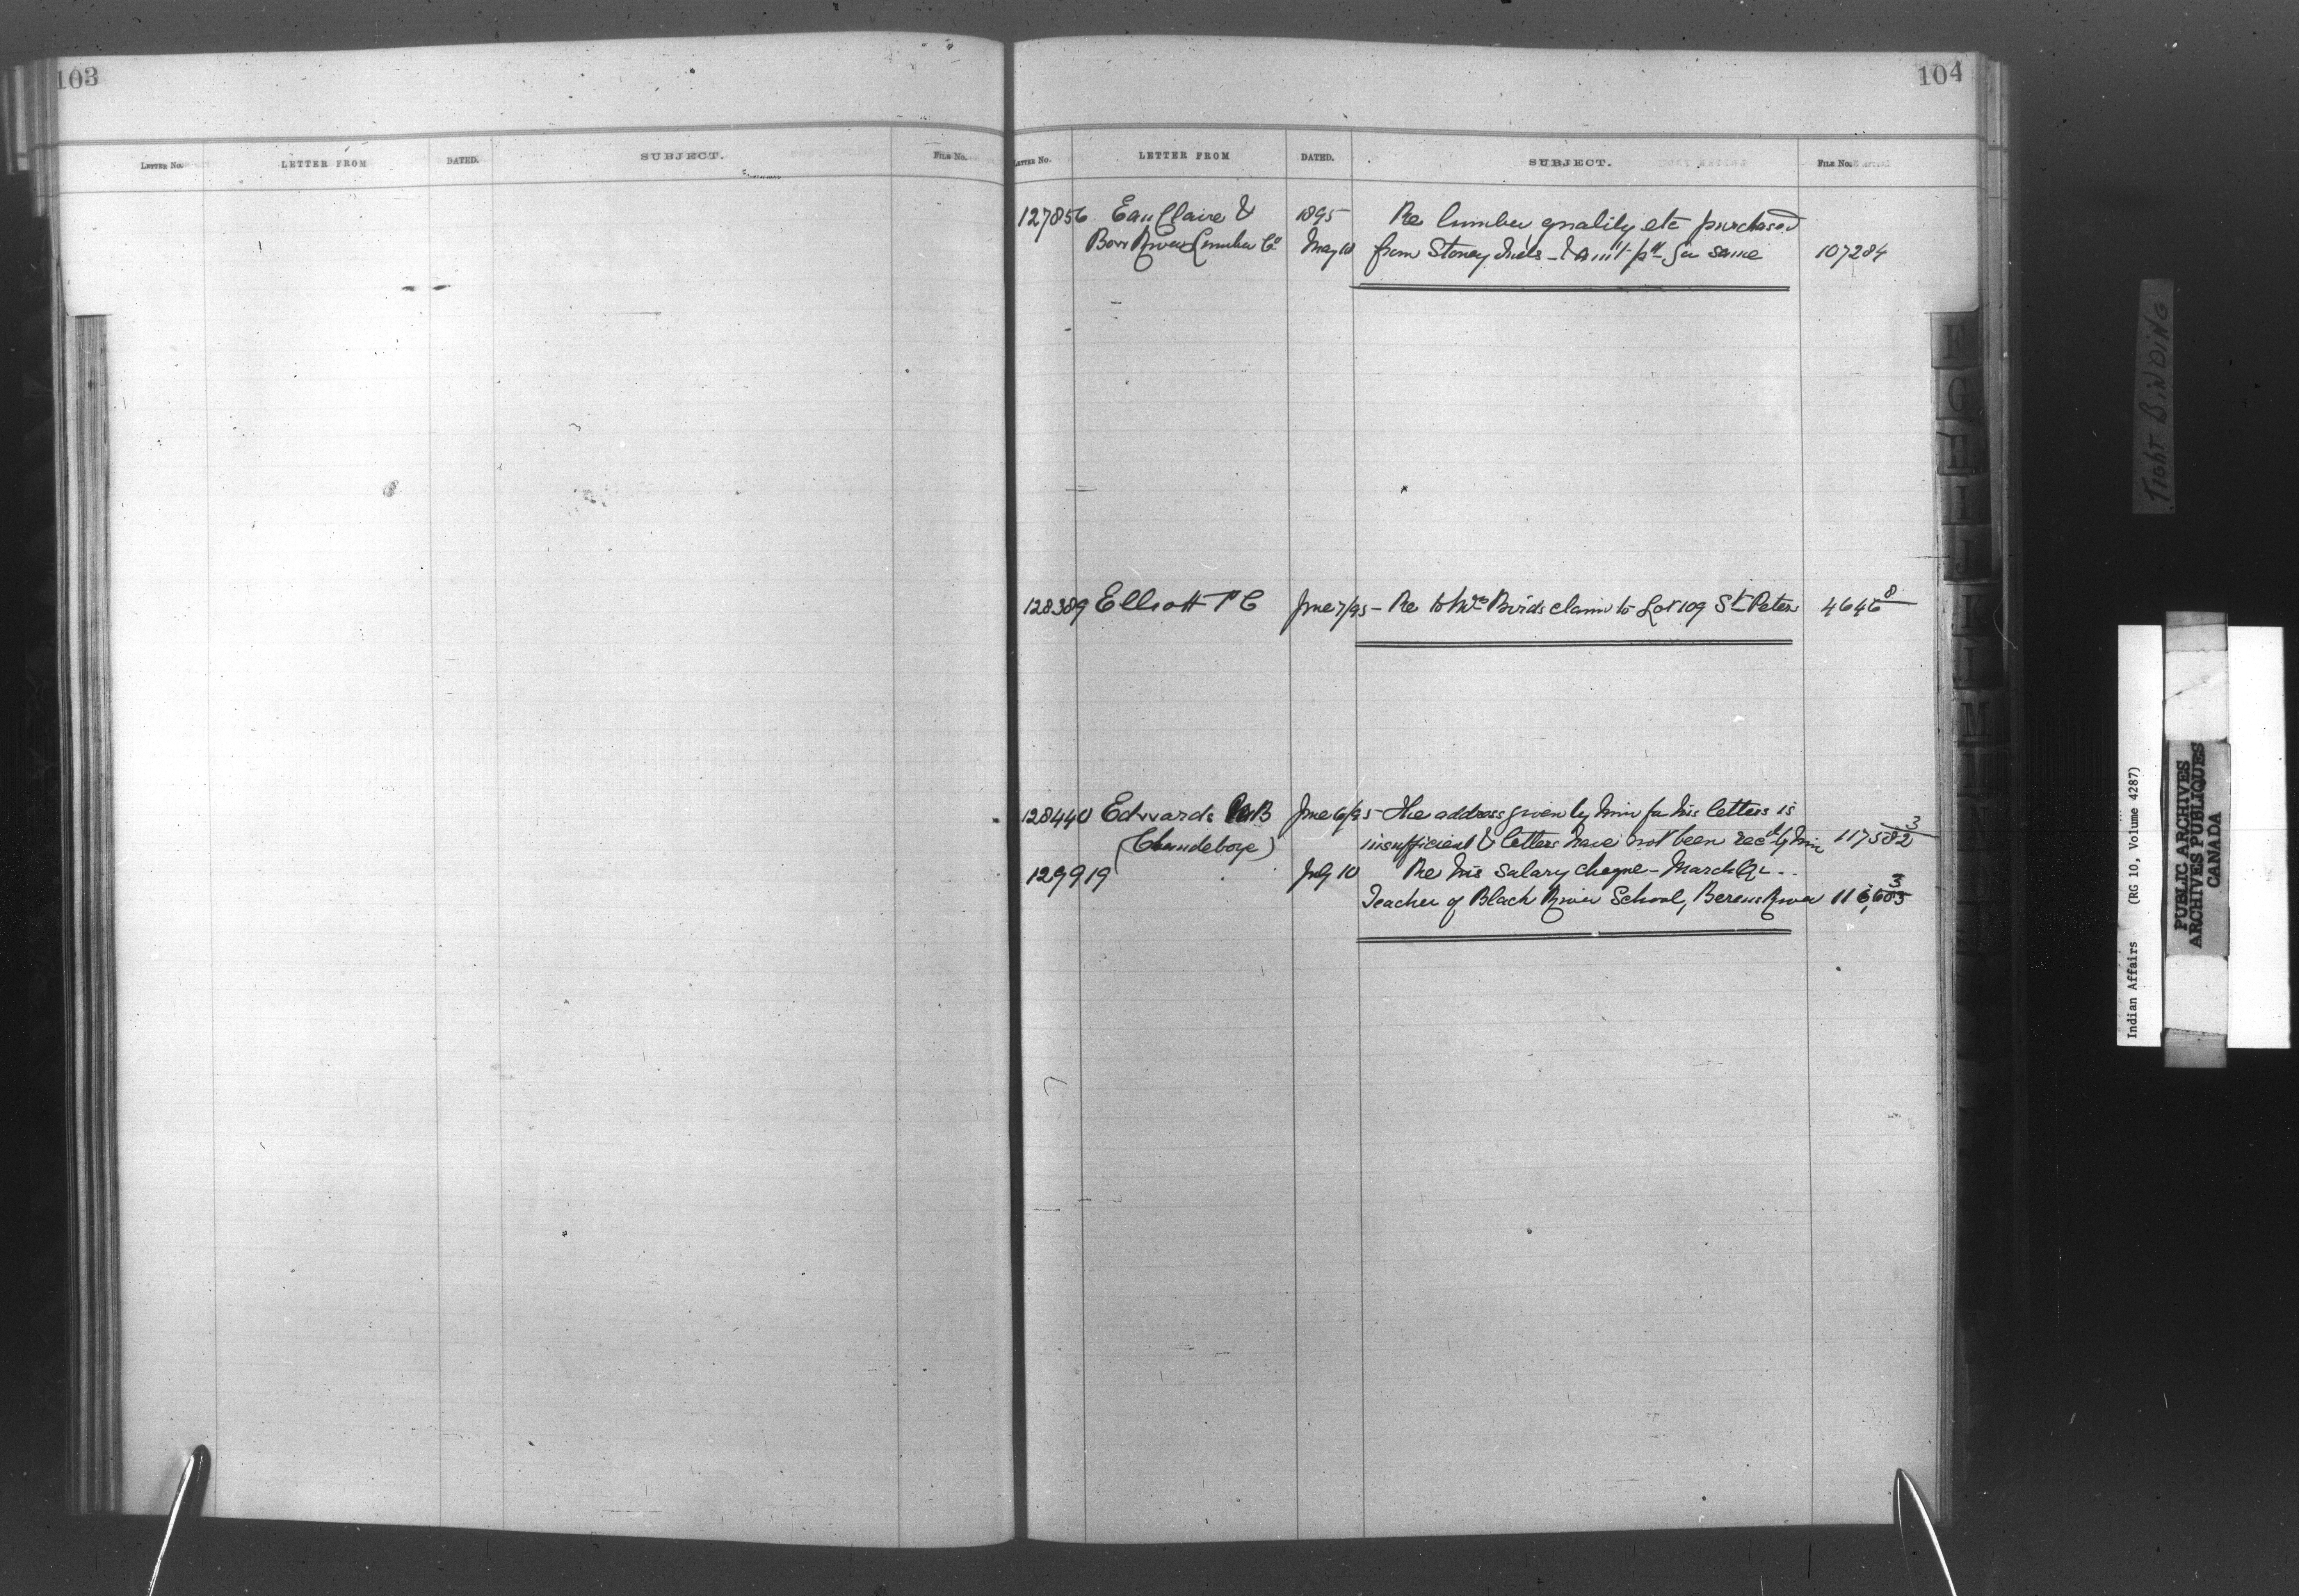 103
LETTER NO. LETTER FROM DATED. SUBJECT. FILE NO.
104
LETTER NO. LETTER FROM DATED. SUBJECT. FILE NO.
127856 Eau Claire & 1895 Re lumber quality etc purchased
Bow River Lumber Co May 10 from Stoney Inds - & amt pd for same 107284
128389 Elliott P C June 7/95 - Re to Wm Birds claim to Lot 109 St Peters 4646 8
128440 Edwards B June 6/95 - The address given by him for his letters is
(Clandeboye) insufficient & letters have not been recd by him 117582 3
129919 July 10 Re his salary cheque - March Qr - -
Teacher of Black River School, Berens River 3
F
G
H
I
J
K
L
M
TIGHT BINDING
Indian Affairs (RG 10, Volume 4287)
PUBLIC ARCHIVES
ARCHIVES PUBLIQUES
CANADA